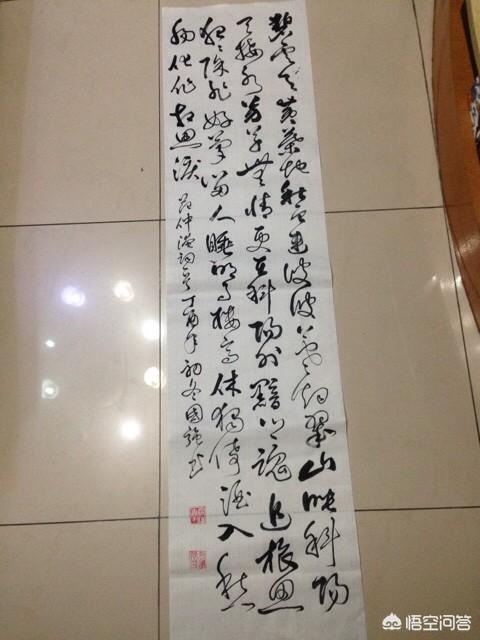 碧云天黄葉地秋色連波波上寒烟翠山映斜阳
天接水芳草無情更在斜阳外黯乡魂追旅思
夜夜除非好夢留人睡明月樓高休独倚酒入愁
肠化作相思淚 范仲淹词 丁酉年初冬國强书
悟空问答